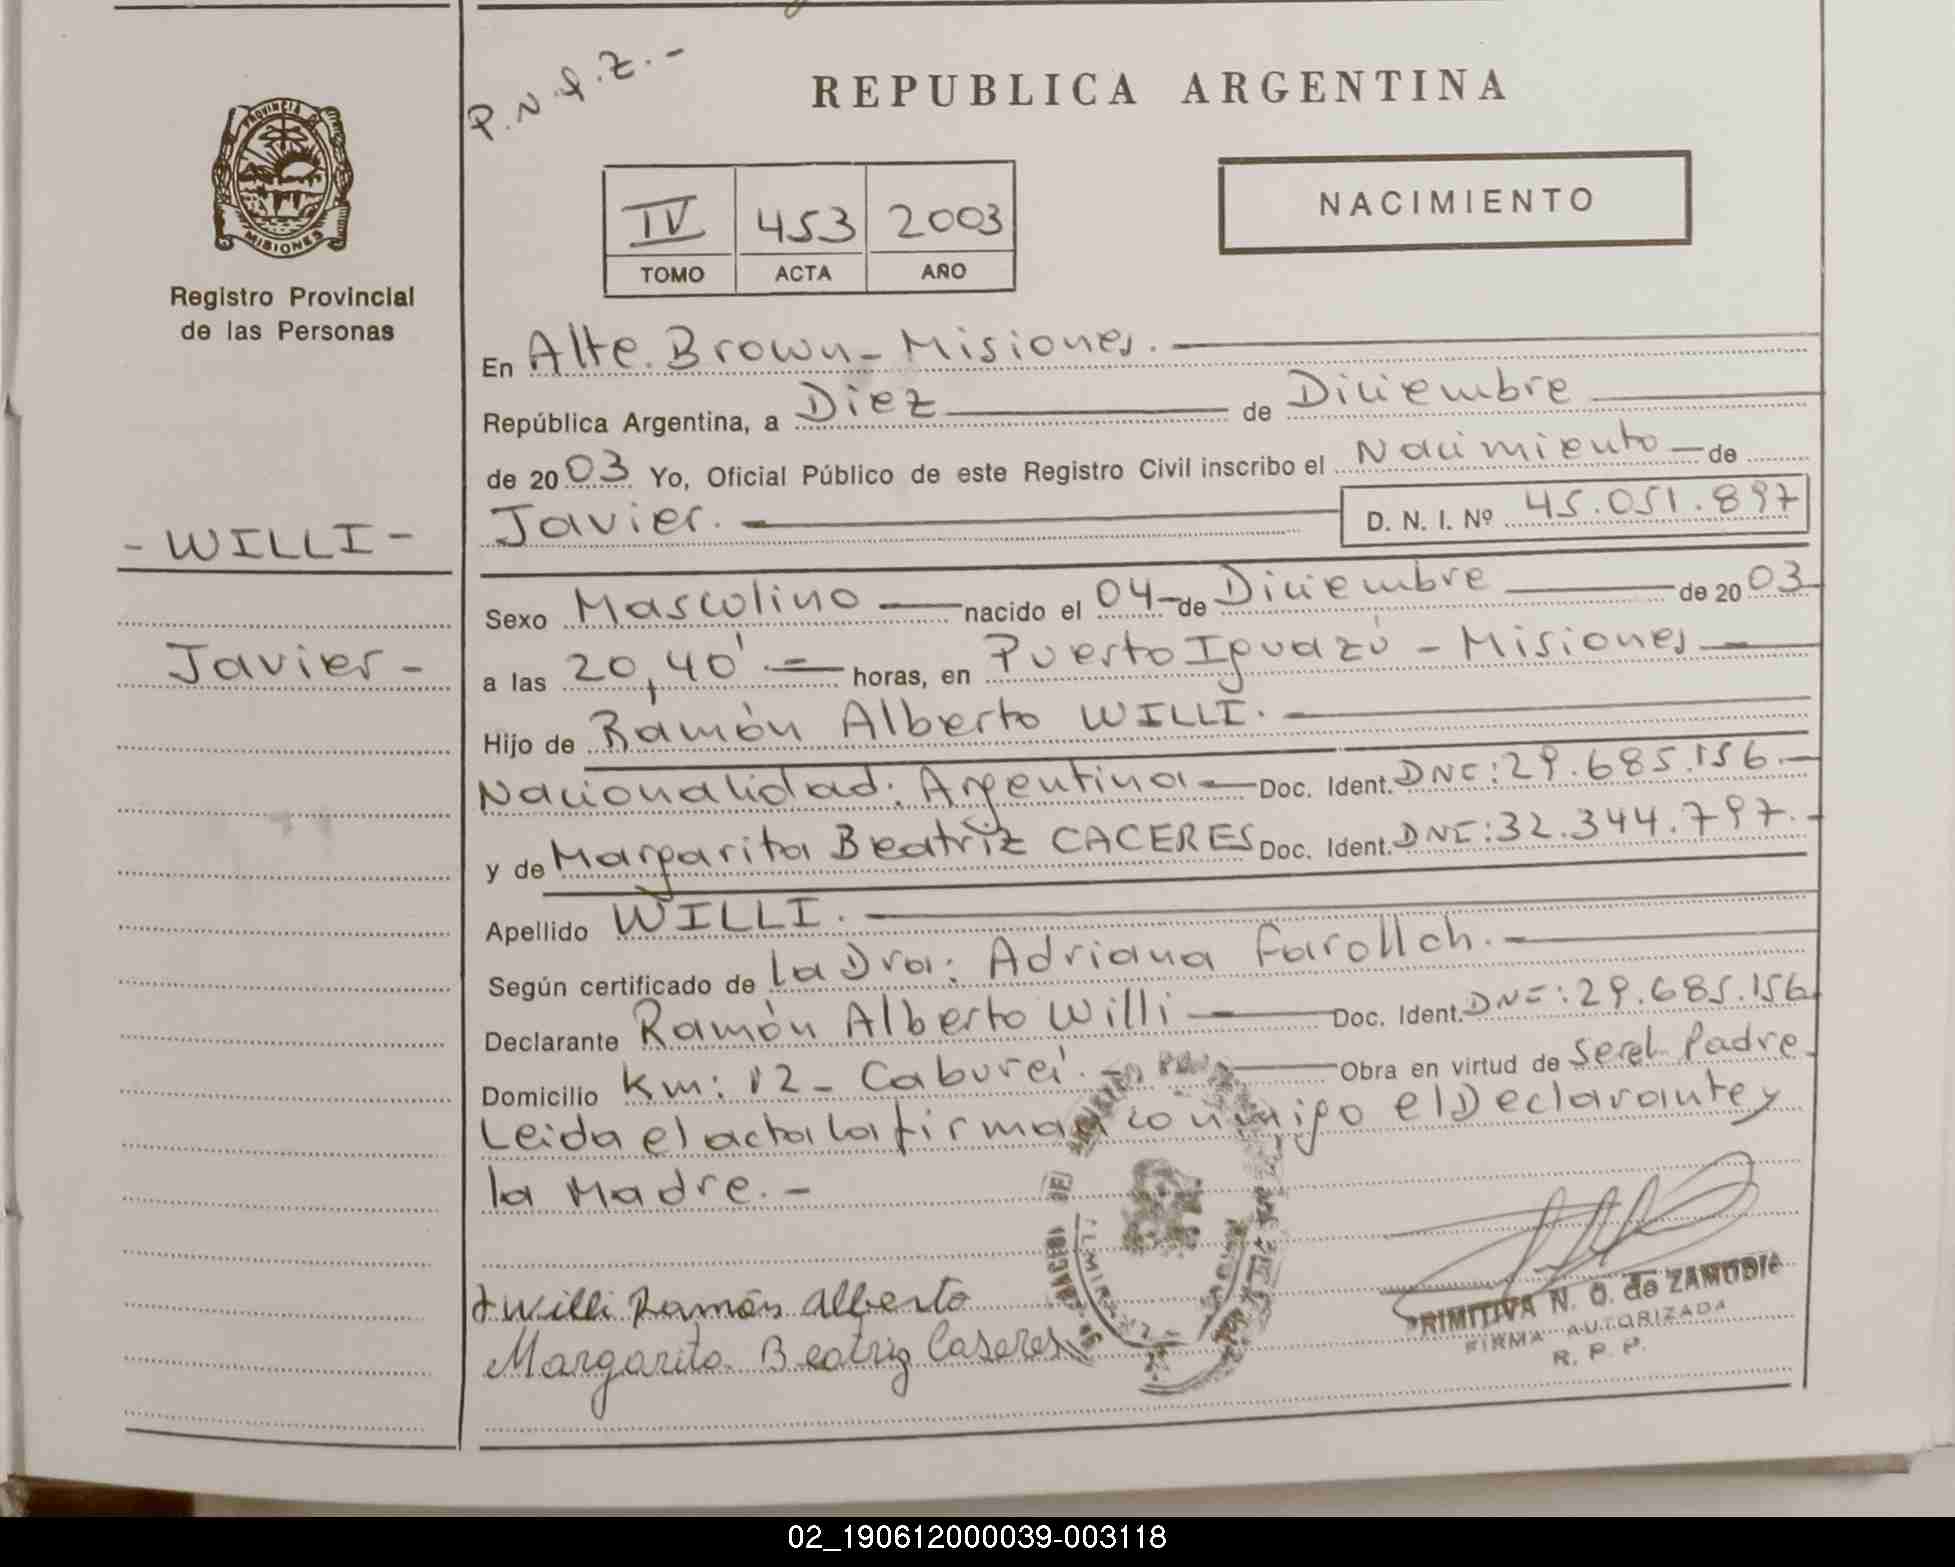 P.N.f.Z.-
REPUBLICA ARGENTINA
PROVINCIA DE
MISIONES
Registro Provincial
de las Personas
IV 453 2003
TOMO ACTA AÑO
NACIMIENTO
En Alte. Brown - Misiones.
República Argentina, a Diez de Diciembre
de 2003 Yo, Oficial Público de este Registro Civil inscribo el Nacimiento de
Javier. D. N. I. Nº 45.051.897
- WILLI -
Javier -
Sexo Masculino nacido el 04 de Diciembre de 2003
a las 20,40' horas, en Puerto Iguazú - Misiones
Hijo de Ramón Alberto WILLI.
Nacionalidad: Argentina Doc. Ident. DNI: 29.685.156.-
y de Margarita Beatriz CACERES Doc. Ident. DNI: 32.344.797.-
Apellido WILLI.
Según certificado de la Dra: Adriana Farollch.
Declarante Ramón Alberto Willi Doc. Ident. DNI: 29.685.156
Domicilio Km: 12 - Cabureí. Obra en virtud de Ser el Padre.
Leida el acta la firman conmigo el Declarante y
la Madre. -
Willi Ramón Alberto
Margarita Beatriz Caseres
PRIMITIVA N. O. de ZAMUDIO
FIRMA AUTORIZADA
R. P. P.
02_190612000039-003118